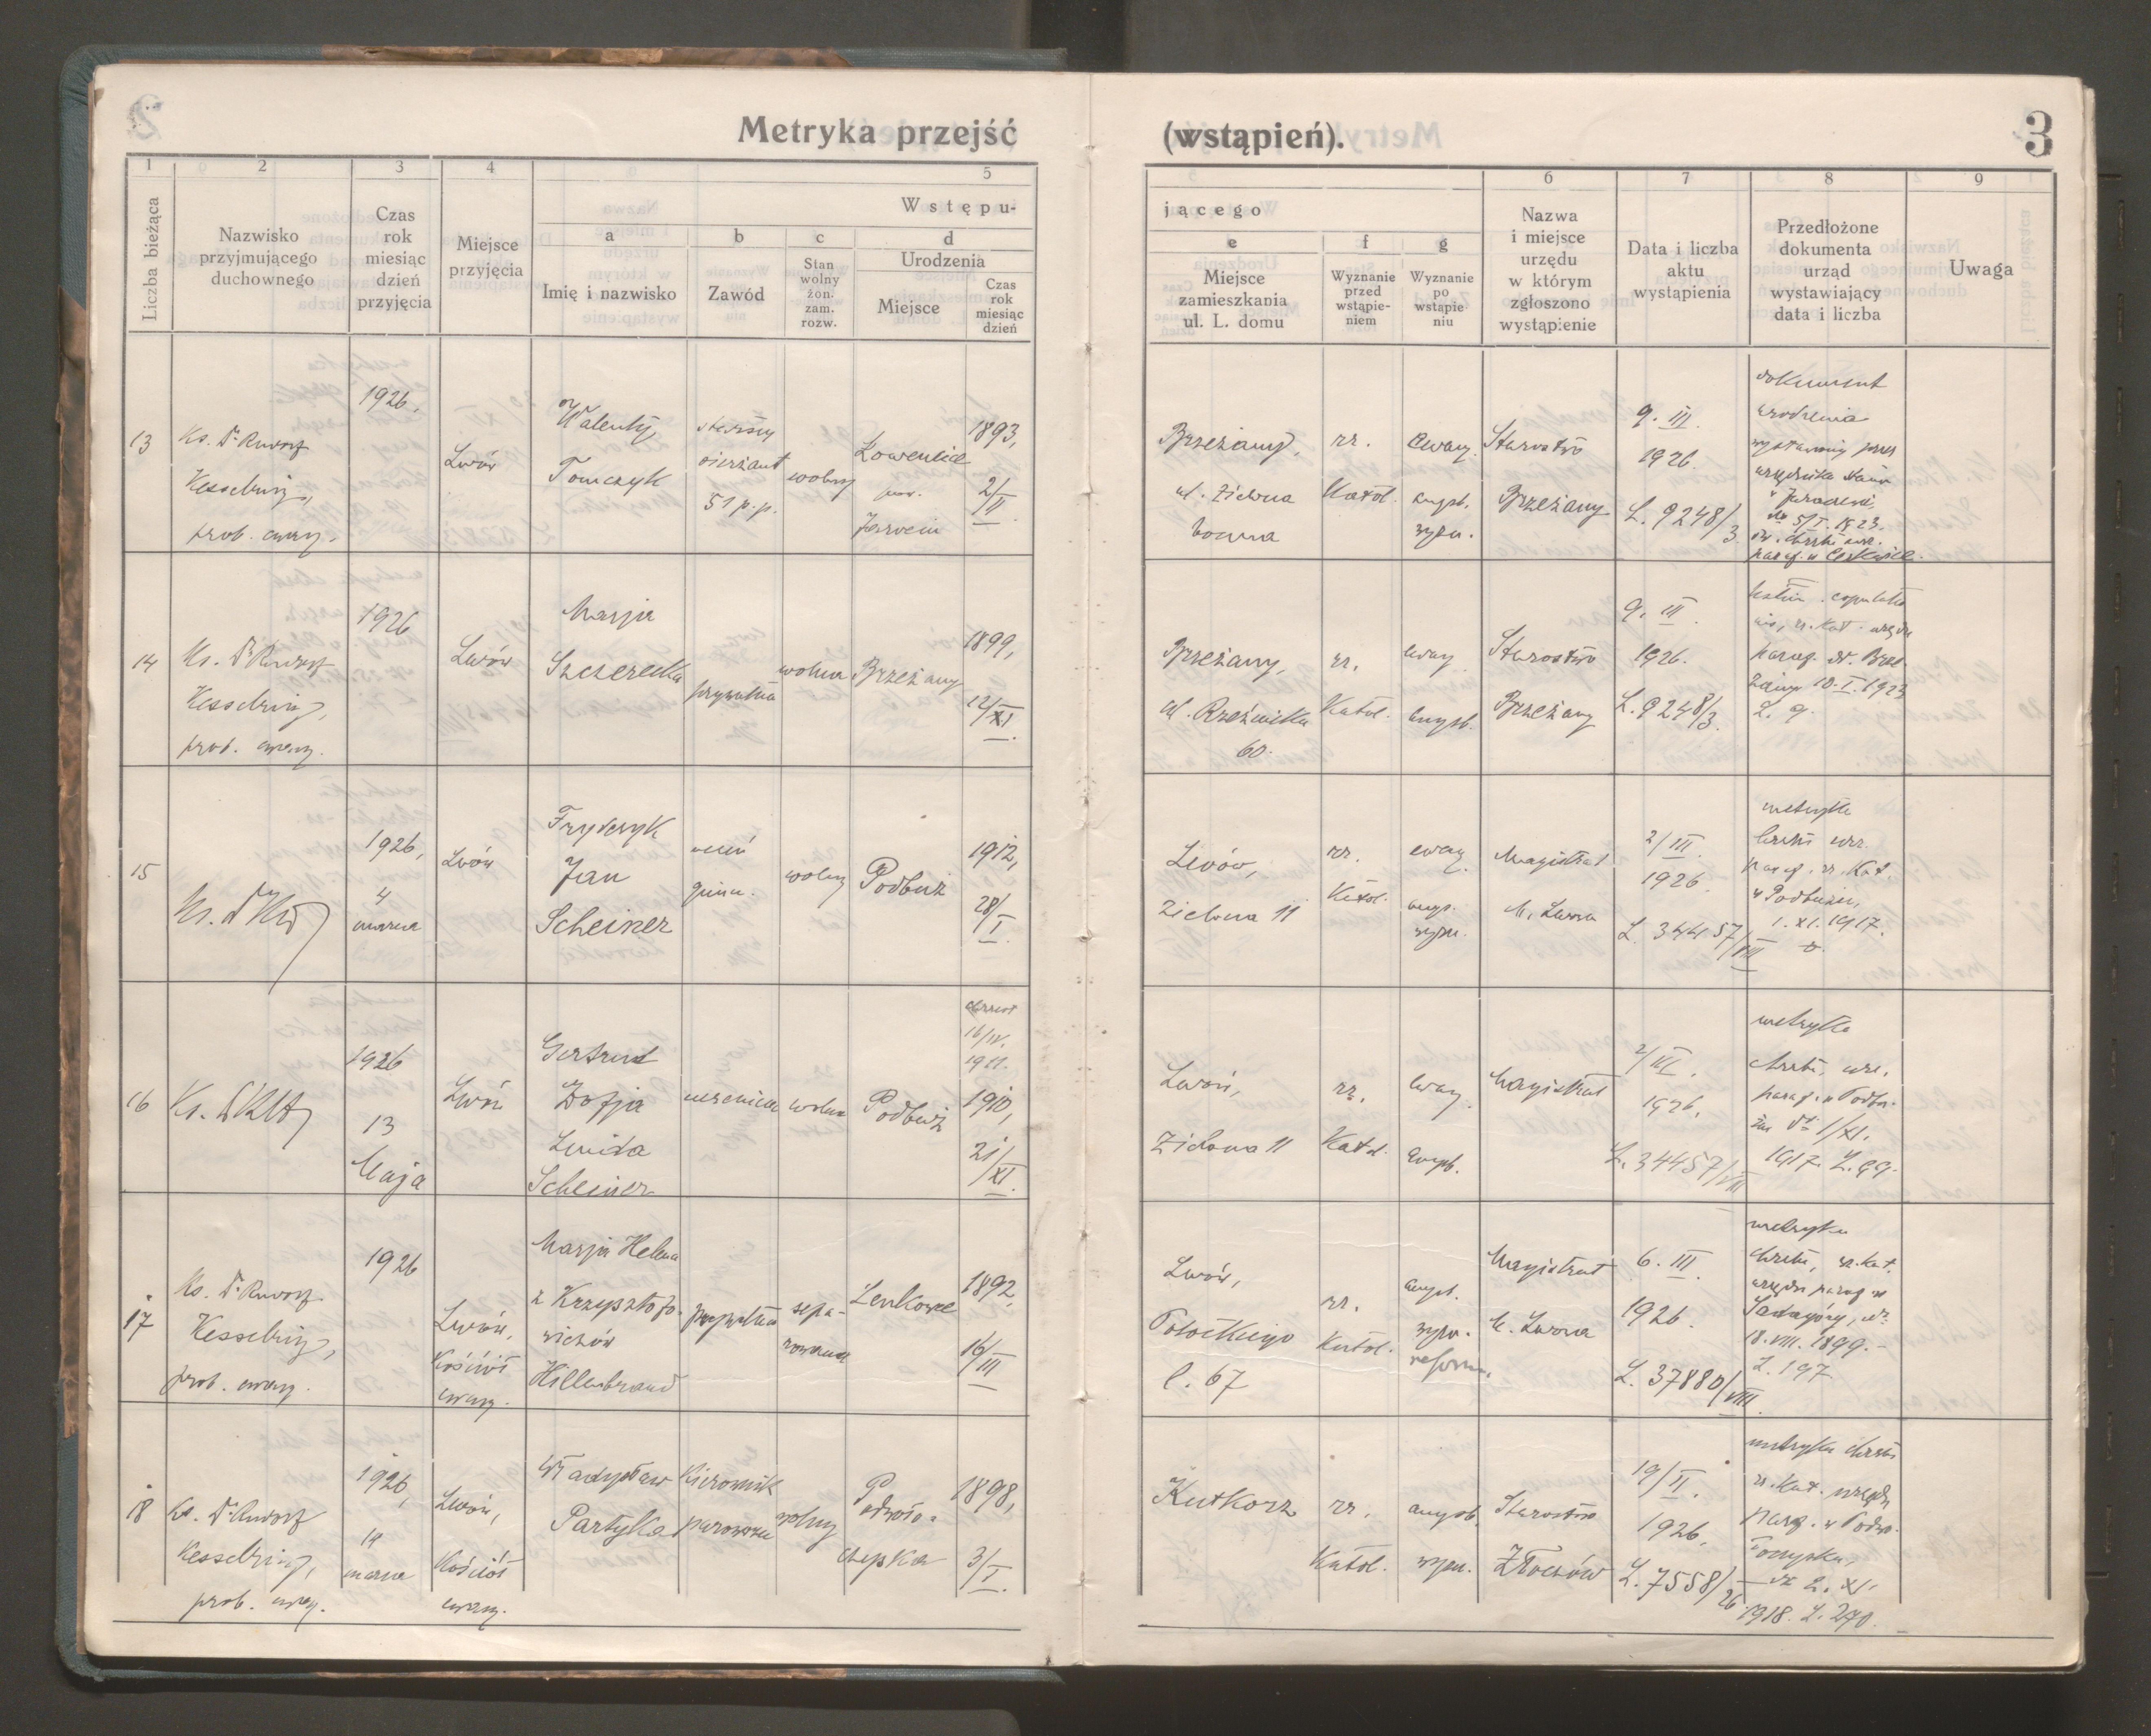 Metryka przejść (wstąpień).
3
1 2 3 4 5
Liczba bieżąca
Nazwisko
przyjmującego
duchownego
Czas
rok
miesiąc
dzień
przyjęcia
Miejsce
przyjęcia
Wstępu-
a b c d
Imię i nazwisko
Zawód
Stan
wolny
żon.
zam.
rozw.
Urodzenia
Miejsce
Czas
rok
miesiąc
dzień
5 6 7 8 9
jącego
e f g
Miejsce
zamieszkania
ul. L. domu
Wyznanie
przed
wstąpie-
niem
Wyznanie
po
wstąpie
niu
Nazwa
i miejsce
urzędu
w którym
zgłoszono
wystąpienie
Data i liczba
aktu
wystąpienia
Przedłożone
dokumenta
urząd
wystawiający
data i liczba
Uwaga
13
Ks. Dr Rudolf
Kesselring,
prob. ewang.
1926,
Lwów
Walenty
Tomczyk
starszy
sierżant
51 p.p.
wolny
pow.
Jarocin
1893,
2/II
Brzeżany,
ul. Zielona
rz.
Katol.
ewang.
augsb.
wyzn.
Starostwo
Brzeżany
9. III
1926.
L. 9248/3
dokument
urodzenia
wystawiony przez
5/I. 1923.
14
Ks. Dr Rudolf
Kesselring,
prob. ewang.
1926
Lwów
Marja
Szczerecka
prywatna
wolna
Brzeżany
1899,
12/XI.
Brzeżany,
60.
rz.
Katol.
ewang
augsb.
Starostwo
Brzeżany
9. III.
1926.
L. 9248/3.
10. I. 1923
L. 9.
15
1926,
4
marca
Lwów
Fryderyk
Jan
Scheiner
uczeń
gimn.
wolny
Podbuż
1912,
28/I.
Lwów,
Zielona 11
rz.
Katol.
ewang.
augs.
wyzn.
Magistrat
M. Lwowa
2/III.
1926.
L. 34457/VIII
metryka
chrztu urz.
paraf. rz. Kat.
w Podbużu,
1. XI. 1917.
16
1926
13
Maja
Lwów
Gertrud
Zofja
Scheiner
uczenica
wolna
Podbuż
chrzest
16/IV.
1911.
1910,
21/XI.
Lwów,
Zielona 11
rz.
Katol.
ewang.
augsb.
Magistrat
2/III.
1926.
L. 34457/VIII
metryka
chrztu, urz.
paraf. w Podbu-
żu dto 1/XI.
1917. L. 99.
17
Ks. Dr Rudolf
Kesselring,
prob. ewang.
1926
Lwów,
Kościół
ewang.
Marja Helena
z Krzysztofo-
wiczów
Hillenbrand
prywatna
sepa-
rowana
Lenkowce
1892,
16/III
Lwów,
Potockiego
l. 67
rz.
Katol.
augsb.
wyzn.
reform.
Magistrat
M. Lwowa
6. III.
1926.
L. 37880/VIII.
metryka
chrztu, rz. kat.
urzędu paraf. w
Sadagóry, dto
18. VIII. 1899.-
L. 197
18
Ks. Dr Rudolf
Kesselring,
prob. ewang.
1926,
14
marca
Lwów,
Kościół
ewang.
Władysław
Partyka
Kierownik
parowozu
wolny
Podwoło-
czyska
1898,
3/I.
Kutkorz
rz.
Katol.
augsb.
wyzn.
Starostwo
Złoczów
19/II.
1926,
L. 7558/26.
metryka chrztu
rz. Kat. urzędu
paraf. w Podwo-
łoczyska,
dto 2. XI.
1918. L. 270.